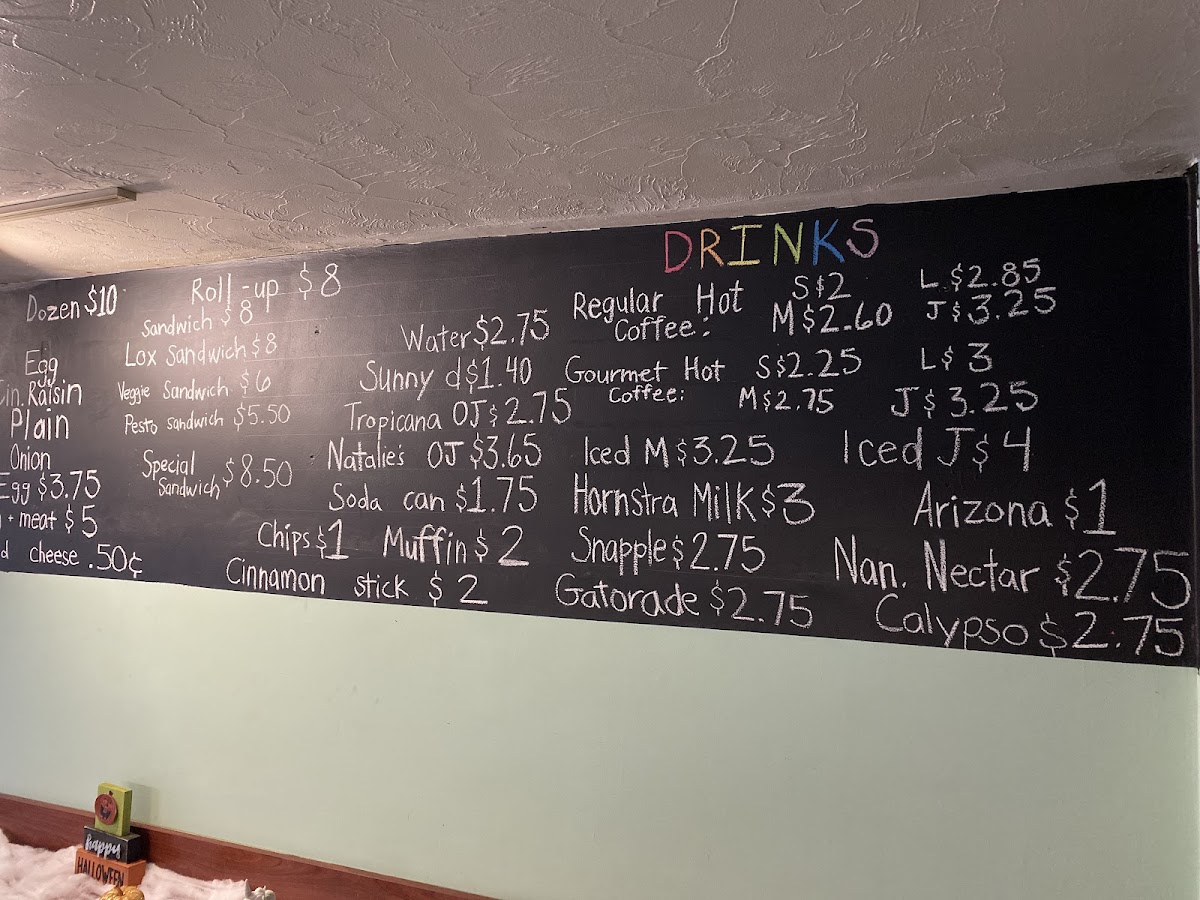 Dozen $10
Egg
in. Raisin
Plain
Onion
Egg $3.75
+ meat $5
cheese .50¢
Roll-up $8
Sandwich $8
Lox Sandwich $8
Veggie Sandwich $6
Pesto Sandwich $5.50
Special
Sandwich $8.50
Water $2.75
Sunny d $1.40
Tropicana OJ $2.75
Natalie's OJ $3.65
Soda can $1.75
Chips $1 Muffin $2
Cinnamon stick $2
DRINKS
Regular Hot S $2 L $2.85
Coffee: M $2.60 J $3.25
Gourmet Hot S $2.25 L $3
Coffee: M $2.75 J $3.25
Iced M $3.25 Iced J $4
Hornstra Milk $3 Arizona $1
Snapple $2.75 Nan. Nectar $2.75
Gatorade $2.75 Calypso $2.75
happy
HALLOWEEN